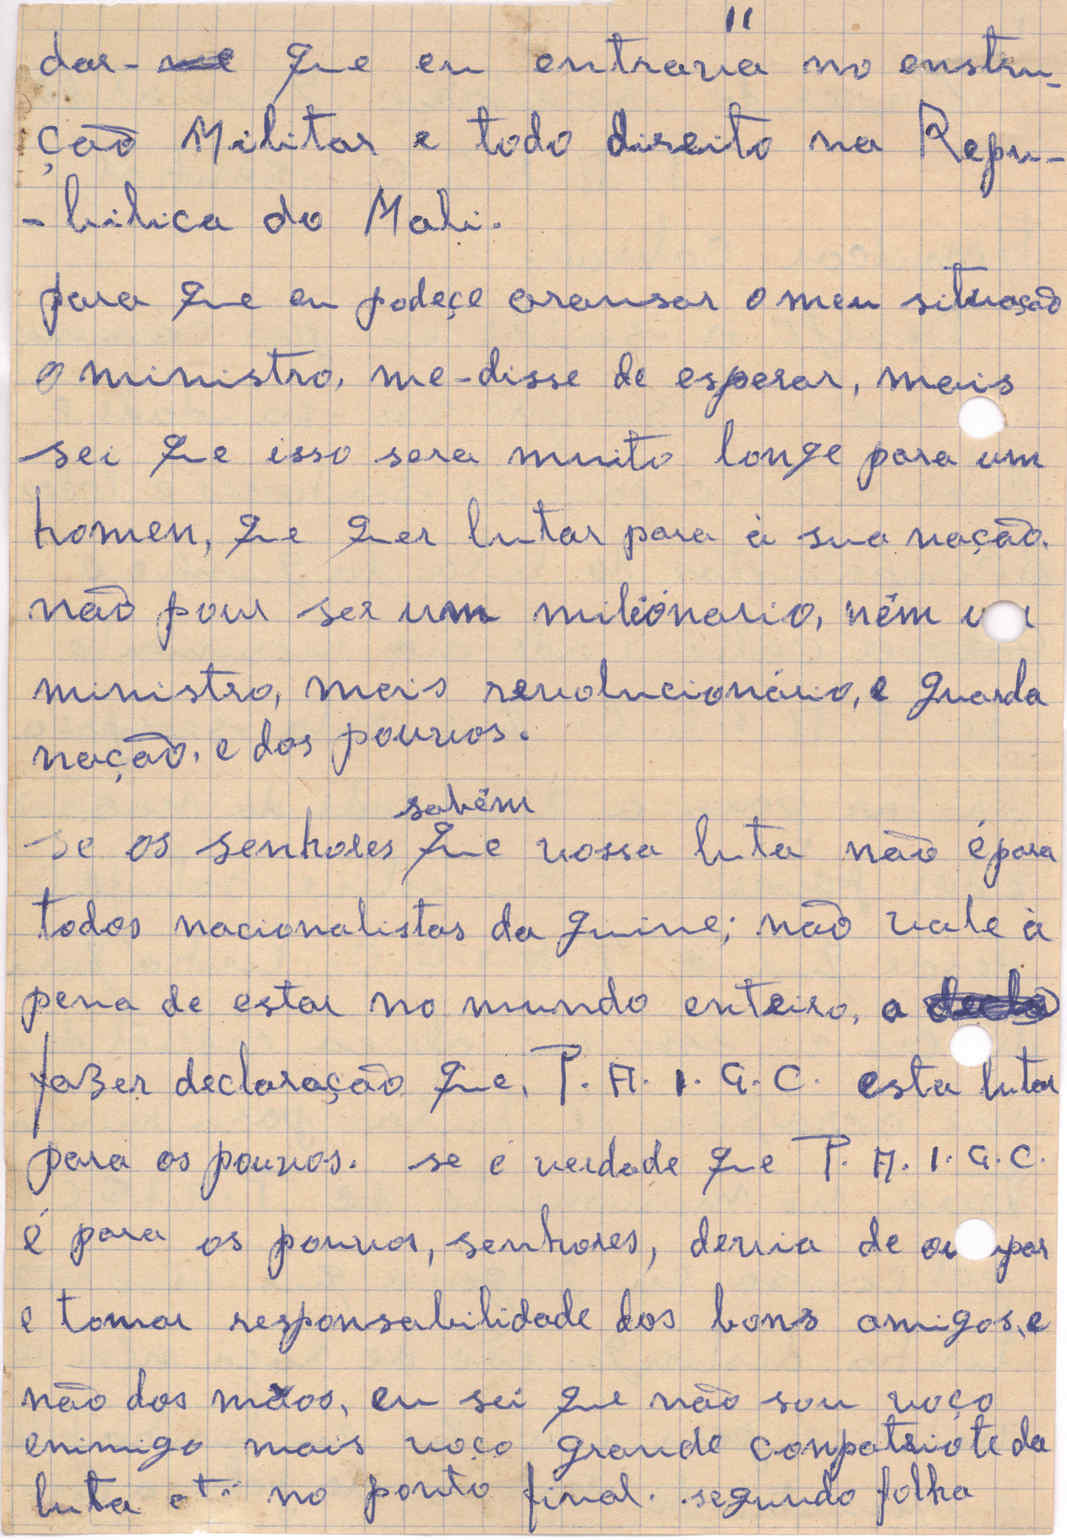 11
dar- me que eu entraria no enstru-
ção Militar e todo direito na Repu-
- bilica do Mali.
para que eu podeçe aransar o meu situação
o ministro, me-disse de esperar, mais
sei que isso sera muito longe para um
homen, que quer lutar para à sua nação.
não pour ser um milionario, ném
ministro, mais revolucionário, e guarda
nação. e dos pouvos.
sabém
se os senhores que vossa luta não é para
todos nacionalistas da guine; não vale à
pena de estar no mundo enteiro, a
fazer declaração que, P. A. I. G. C. esta lutar
para os pouvos. se é verdade que P. A. I. G. C.
é para os pouvos, senhores, devia de
e tomar responsabilidade dos bons amigos, e
não dos máos, eu sei que não sou voço
enimigo mais voço grande conpatriote da
luta até no ponto final. segundo folha